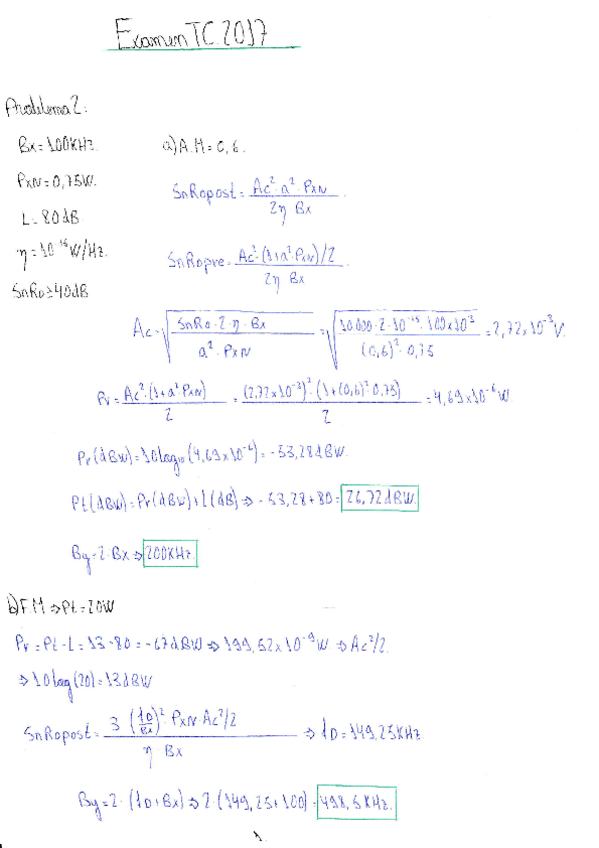 Examen TC.2017
Problema 2:
Bx=100KHz.
a) A.M=0,6.
PxN=0,75W.
SnRopost= Ac²·a²·PxN / 2η Bx
L=80dB
η=10⁻¹⁵W/Hz.
SnRopre= Ac²·(1+a²·PxN)/2 / 2η Bx
SnRo≥40dB
Ac=√(SnRo·2·η·Bx / a²·PxN) = √(10.000·2·10⁻¹⁵·100x10³ / (0,6)²·0,75) =2,72x10⁻³V.
Pr= Ac²·(1+a²·PxN) / 2 = (2,72x10⁻³)²·(1+(0,6)²·0,75) / 2 =4,69x10⁻⁶W
Pr(dBW)=10log₁₀(4,69x10⁻⁶)=-53,28dBW.
Pt(dBW)=Pr(dBW)+L(dB)⇒-53,28+80=26,72dBW.
By=2·Bx⇒200KHz.
b)F.M⇒Pt=20W
Pr=Pt-L=13-80=-67dBW⇒199,52x10⁻⁹W⇒Ac²/2.
⇒10log(20)=13dBW
SnRopost= 3 (fD/Bx)² PxN·Ac²/2 / η·Bx ⇒fD=149,25KHz
By=2·(fD+Bx)⇒2·(149,25+100)=498,5KHz.
1.